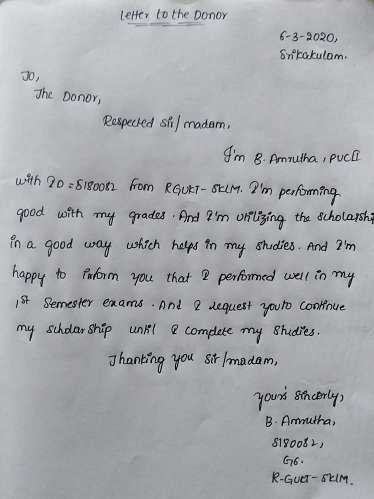 Letter to the Donor
6-3-2020,
Srikakulam.
To,
The Donor,
Respected sir/madam,
I'm B. Amrutha, PUC II
with ID = S180082 from RGUKT- SKLM. I'm performing
good with my grades. And I'm utilizing the scholarship
in a good way which helps in my studies. And I'm
happy to inform you that I performed well in my
1st Semester exams. And I request you to continue
my scholarship until I complete my studies.
Thanking you sir/madam,
yours sincerly,
B. Amrutha,
S180082,
G6.
R-GUKT- SKLM.